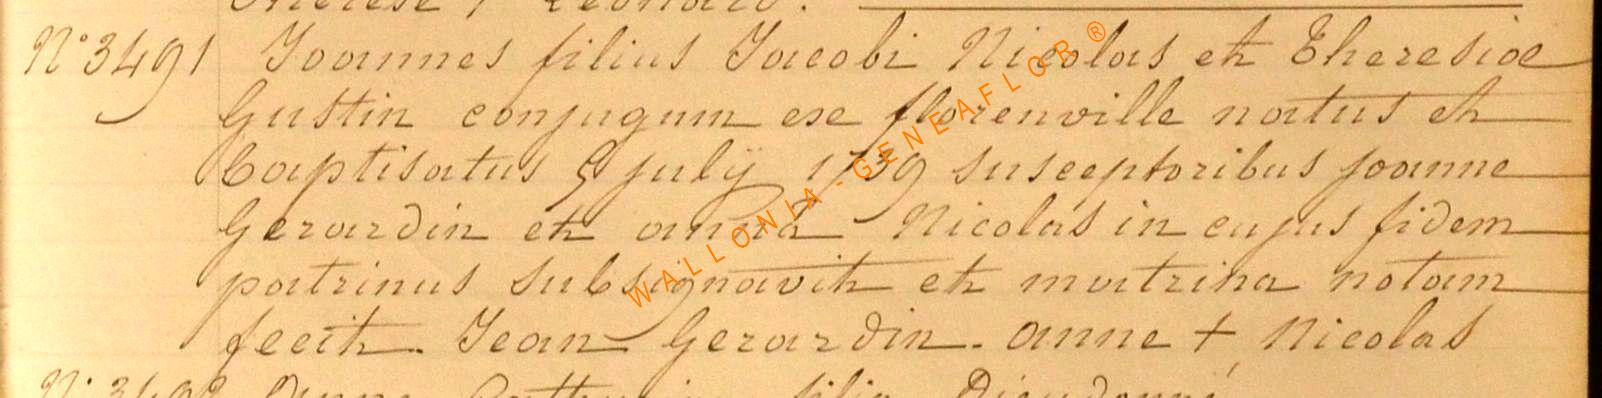 Therese / Leonard.
N° 3491 Joannes filius Jacobi Nicolas et Theresiae
Gustin conjugum ex florenville natus et
baptisatus 5 julÿ 1739 susceptoribus joanne
Gerardin et anna Nicolas in cujus fidem
patrinus subsignavit et matrina notam
fecit. Jean Gerardin. anne + Nicolas
filia Dieudonné
WALLONIA - GENEAFLOR ®